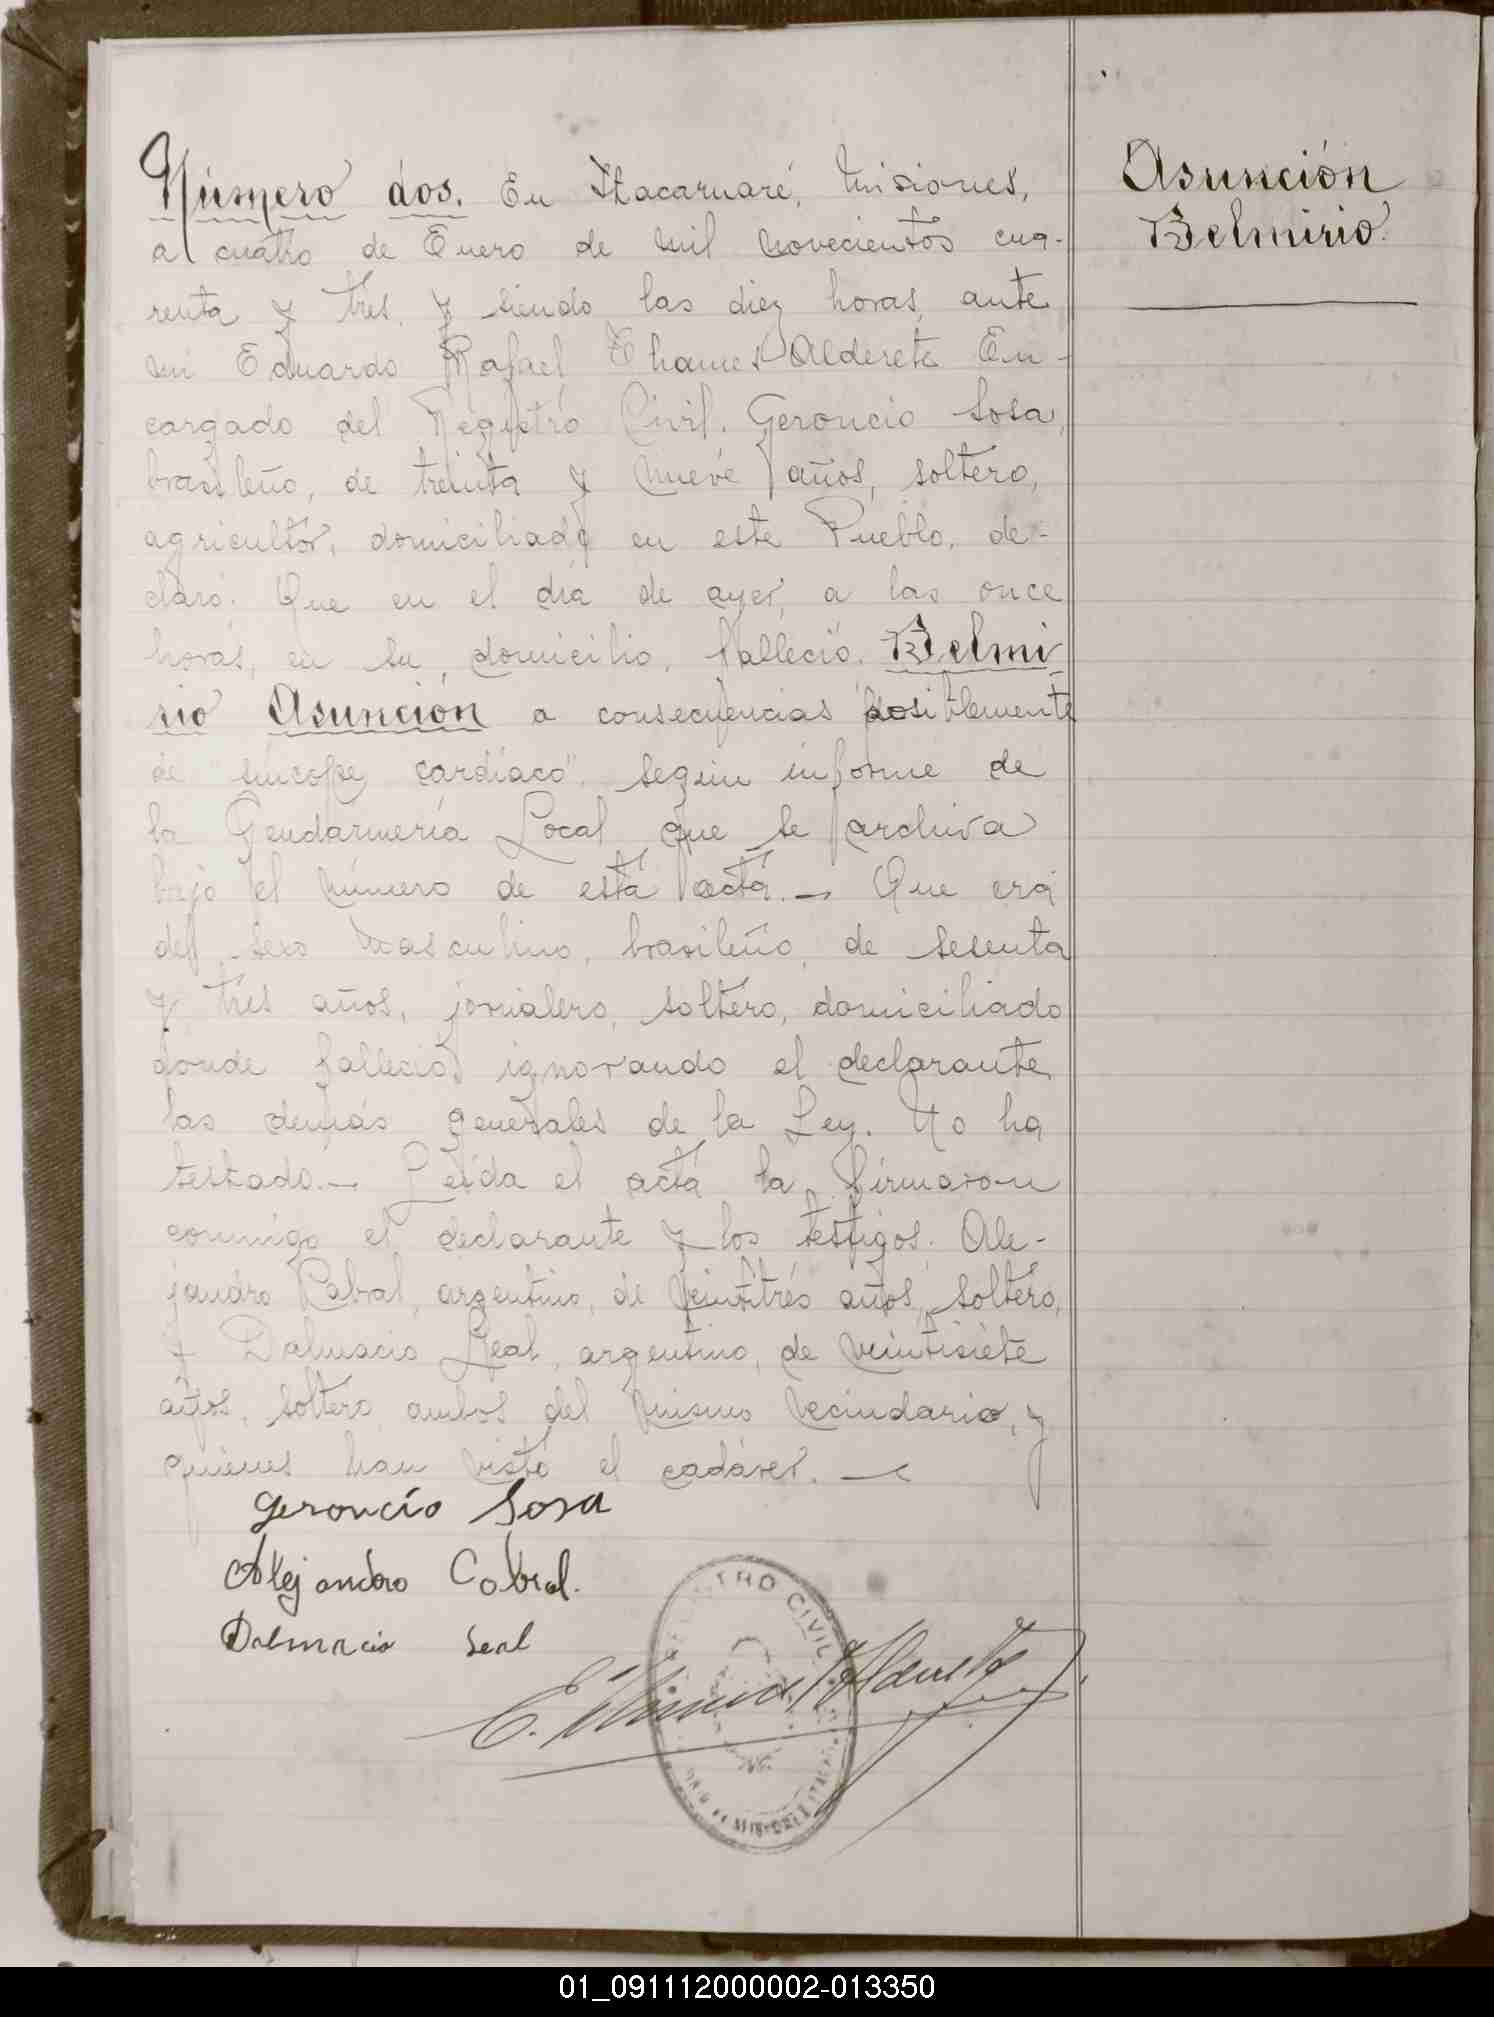 Número dos. En Itacaruaré, Misiones,
a cuatro de Enero de mil novecientos cua-
renta y tres, y siendo las diez horas, ante
mi Eduardo Rafael Thames Alderete En-
cargado del Registro Civil. Geroncio Sosa,
brasileño, de treinta y nueve años, soltero,
agricultor, domiciliado en este Pueblo, de-
claró: Que en el día de ayer, a las once
horas, en su domicilio, falleció, Belmi
rio Asunción a consecuencias posiblemente
de "síncope cardíaco", según informe de
la Gendarmería Local que se archiva
bajo el número de está acta.— Que era
del sexo masculino, brasileño, de sesenta
y tres años, jornalero, soltero, domiciliado
donde falleció, ignorando el declarante
las demás generales de la Ley. No ha
testado.— Leída el acta la firmaron
conmigo el declarante y los testigos: Ale-
jandro Cabral, argentino, de veintitrés años, soltero,
y Dalmacio Leal, argentino, de veintisiete
años, soltero, ambos del mismo vecindario, y
quienes han visto el cadáver.—
Geroncio Sosa
Alejandro Cabral.
Dalmacio Leal
E. Thames Alderete
REGISTRO CIVIL
Asunción
Belmirio.
01_091112000002-013350